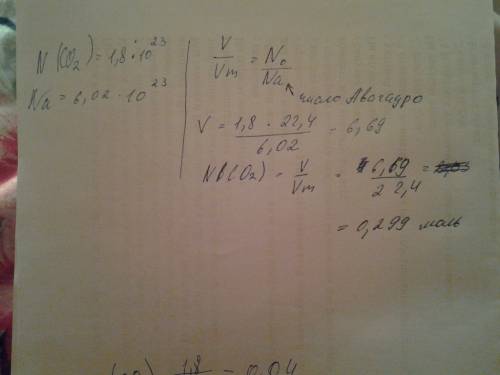 N (CO₂) = 1,8 · 10²³
Na = 6,02 · 10²³
V/Vm = N₀/Na
число Авогадро
V = 1,8 · 22,4 / 6,02 = 6,69
(CO₂) = V/Vm = 6,69 / 22,4 =
= 0,299 моль
1,8 = 0,04